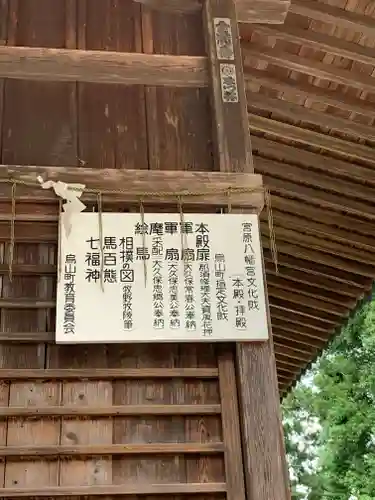 宮原八幡宮文化財
(本殿・拝殿)
烏山町指定文化財
本殿扉(那須修理大夫資胤花押)
軍扇(大久保常春公奉納)
軍扇(大久保忠美公奉納)
麾(采配)(大久保忠郷公奉納)
絵馬
相撲の図(牧野牧陵筆)
馬百態
七福神
烏山町教育委員会